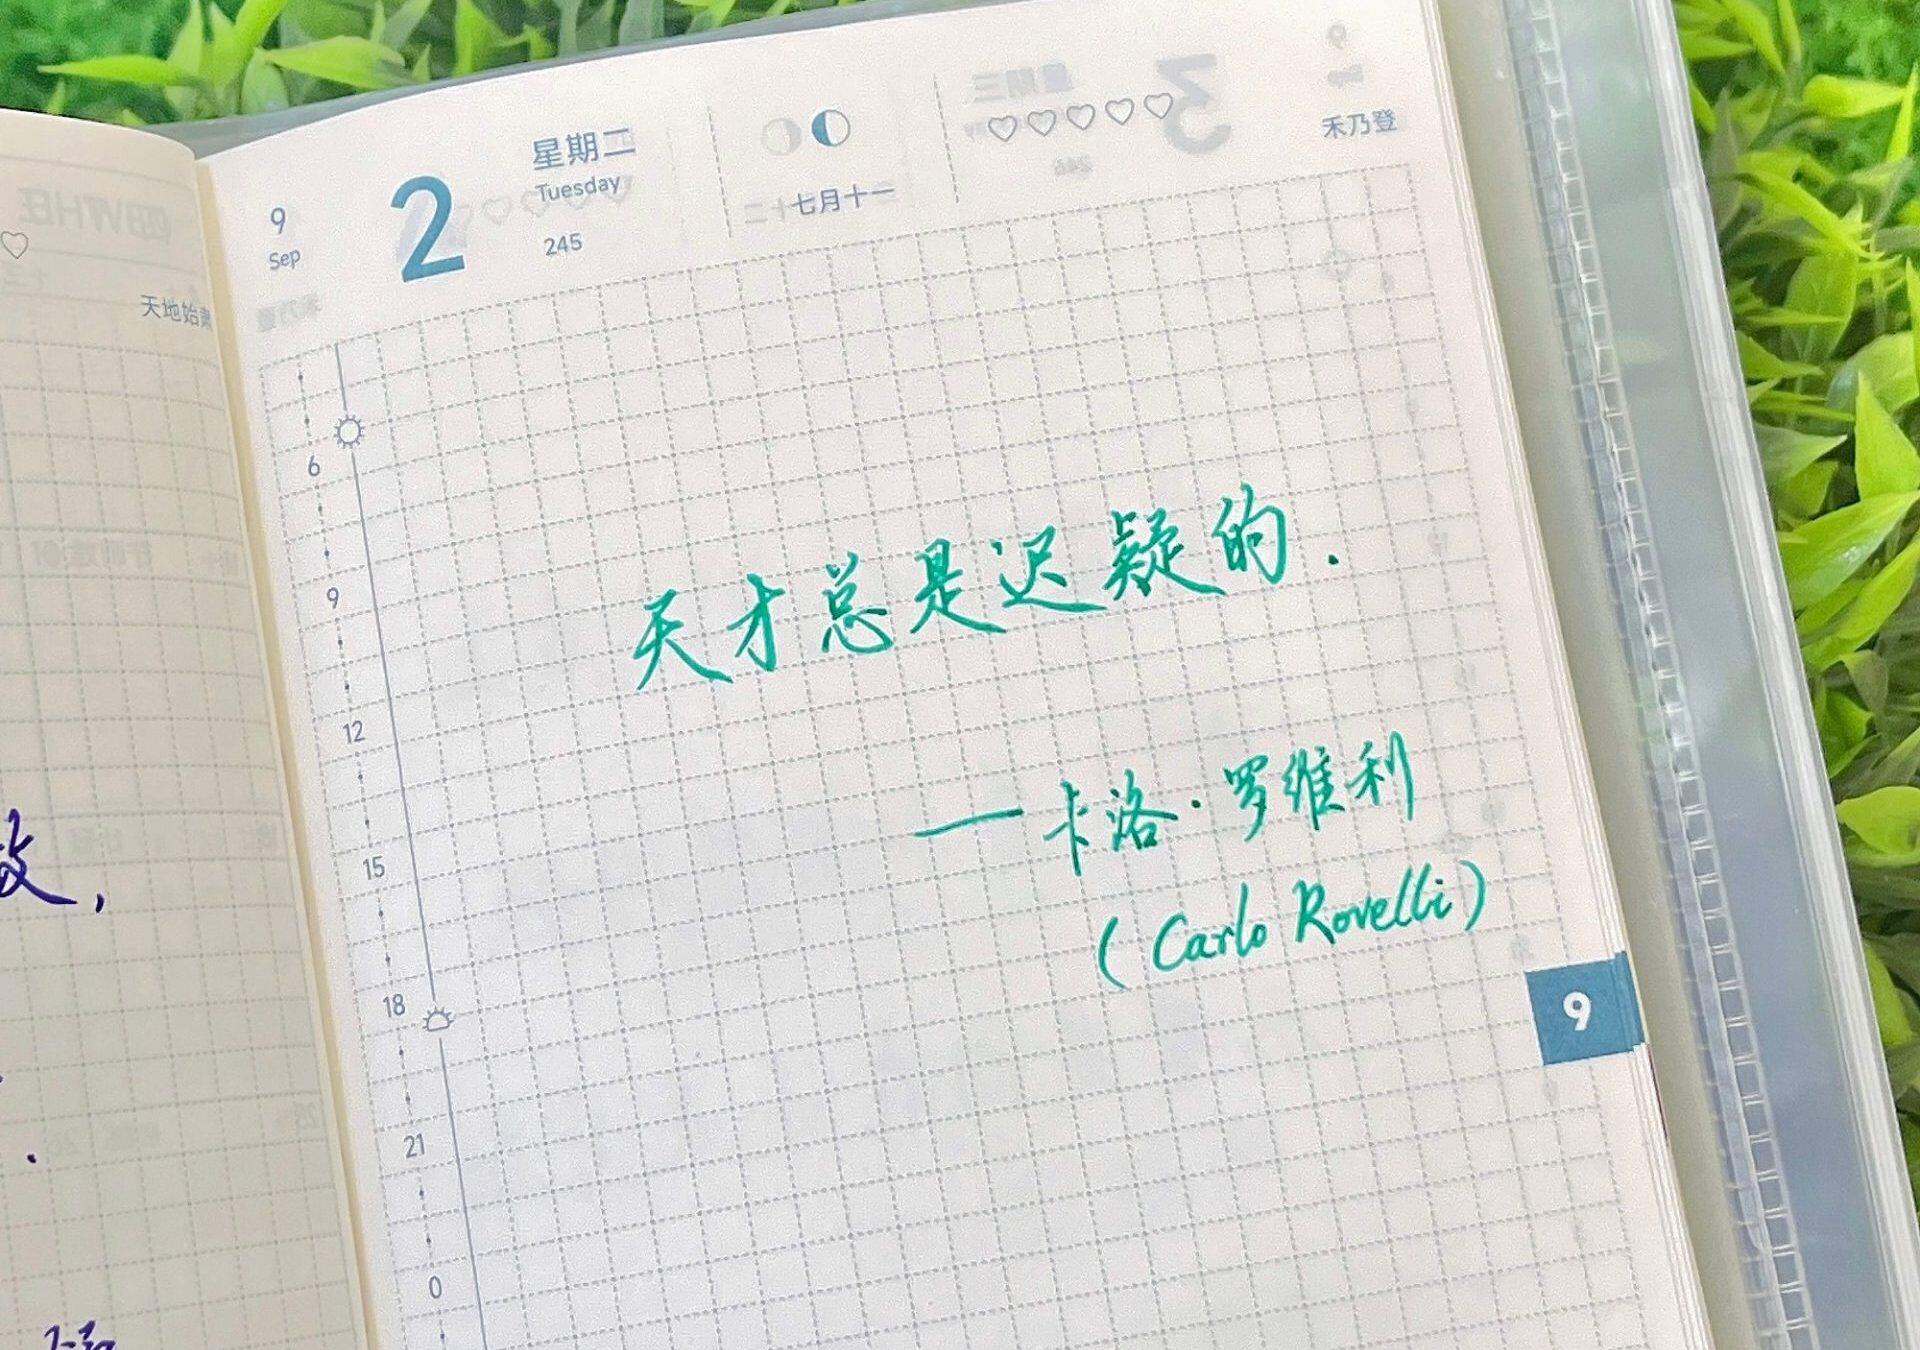 天地始肃
9
Sep
2
星期二
Tuesday
245
七月十一
禾乃登
6
9
12
15
18
21
0
天才总是迟疑的.
——卡洛·罗维利
(Carlo Rovelli)
9